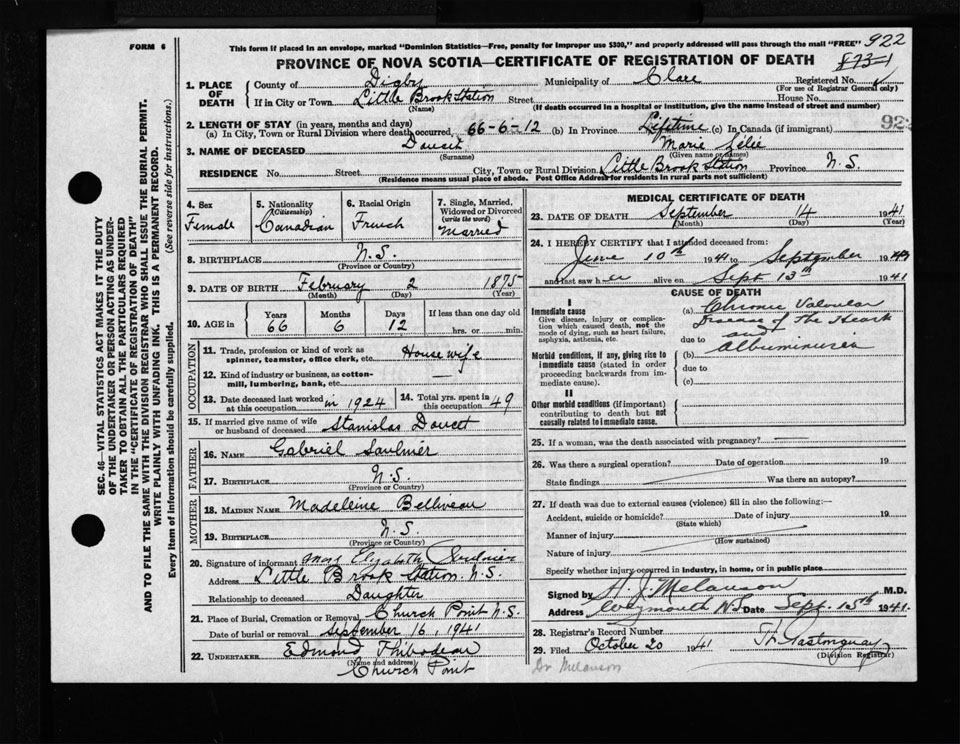 FORM 6
This form if placed in an envelope, marked "Dominion Statistics—Free, penalty for improper use $300," and properly addressed will pass through the mail "FREE" 922
PROVINCE OF NOVA SCOTIA—CERTIFICATE OF REGISTRATION OF DEATH 873-1
1. PLACE OF DEATH County of Digby Municipality of Clare Registered No.
(For use of Registrar General only)
If in City or Town Little Brook Station Street House No.
(Name) (If death occurred in a hospital or institution, give the name instead of street and number)
2. LENGTH OF STAY (in years, months and days)
(a) In City, Town or Rural Division where death occurred, 66-6-12 (b) In Province Lifetime (c) In Canada (if immigrant) 922
3. NAME OF DECEASED Doucet Marie Célie
(Surname) (Given name or names)
RESIDENCE No. Street City, Town or Rural Division Little Brook Station Province N.S.
(Residence means usual place of abode. Post Office Address for residents in rural parts not sufficient)
4. Sex Female
5. Nationality (Citizenship) Canadian
6. Racial Origin French
7. Single, Married, Widowed or Divorced (write the word) Married
8. BIRTHPLACE N.S.
(Province or Country)
9. DATE OF BIRTH February 2 1875
(Month) (Day) (Year)
10. AGE in Years Months Days If less than one day old
66 6 12 hrs. or min.
OCCUPATION
11. Trade, profession or kind of work as spinner, teamster, office clerk, etc. House wife
12. Kind of industry or business, as cotton-mill, lumbering, bank, etc. —
13. Date deceased last worked at this occupation in 1924
14. Total yrs. spent in this occupation 49
15. If married give name of wife or husband of deceased Stanislas Doucet
FATHER
16. NAME Gabriel Saulnier
17. BIRTHPLACE N.S.
(Province or Country)
MOTHER
18. MAIDEN NAME Madeleine Belliveau
19. BIRTHPLACE N.S.
(Province or Country)
20. Signature of informant Mrs Elizabeth
Address Little Brook Station N.S.
Relationship to deceased Daughter
21. Place of Burial, Cremation or Removal Church Point N.S.
Date of burial or removal September 16, 1941
22. UNDERTAKER Edmond Thibodeau
(Name and address)
Church Point
MEDICAL CERTIFICATE OF DEATH
23. DATE OF DEATH September 14 1941
(Month) (Day)
24. I HEREBY CERTIFY that I attended deceased from:
June 10th 1941 to September 1941
and last saw h alive on Sept 13th 1941
CAUSE OF DEATH
I
Immediate cause
Give disease, injury or complication which caused death, not the mode of dying, such as heart failure, asphyxia, asthenia, etc.
(a) Chronic Valvular
Disease of The Heart
and
due to
Morbid conditions, if any, giving rise to immediate cause (stated in order proceeding backwards from immediate cause).
(b) Albuminurea
due to
(c)
II
Other morbid conditions (if important) contributing to death but not causally related to immediate cause.
25. If a woman, was the death associated with pregnancy? —
26. Was there a surgical operation? Date of operation 19
State findings Was there an autopsy?
27. If death was due to external causes (violence) fill in also the following:—
Accident, suicide or homicide? Date of injury 19
(State which)
Manner of injury
(How sustained)
Nature of injury
Specify whether injury occurred in industry, in home, or in public place
Signed by H. J. Melanson M.D.
Address Weymouth N.S. Date Sept. 15th 1941.
28. Registrar's Record Number
29. Filed October 20 1941
(Division Registrar)
Dr Melanson
SEC. 46—VITAL STATISTICS ACT MAKES IT THE DUTY
OF THE UNDERTAKER OR PERSON ACTING AS UNDER-
TAKER TO OBTAIN ALL THE PARTICULARS REQUIRED
IN THE "CERTIFICATE OF REGISTRATION OF DEATH"
AND TO FILE THE SAME WITH THE DIVISION REGISTRAR WHO SHALL ISSUE THE BURIAL PERMIT.
WRITE PLAINLY WITH UNFADING INK. THIS IS A PERMANENT RECORD.
Every item of information should be carefully supplied. (See reverse side for instructions.)